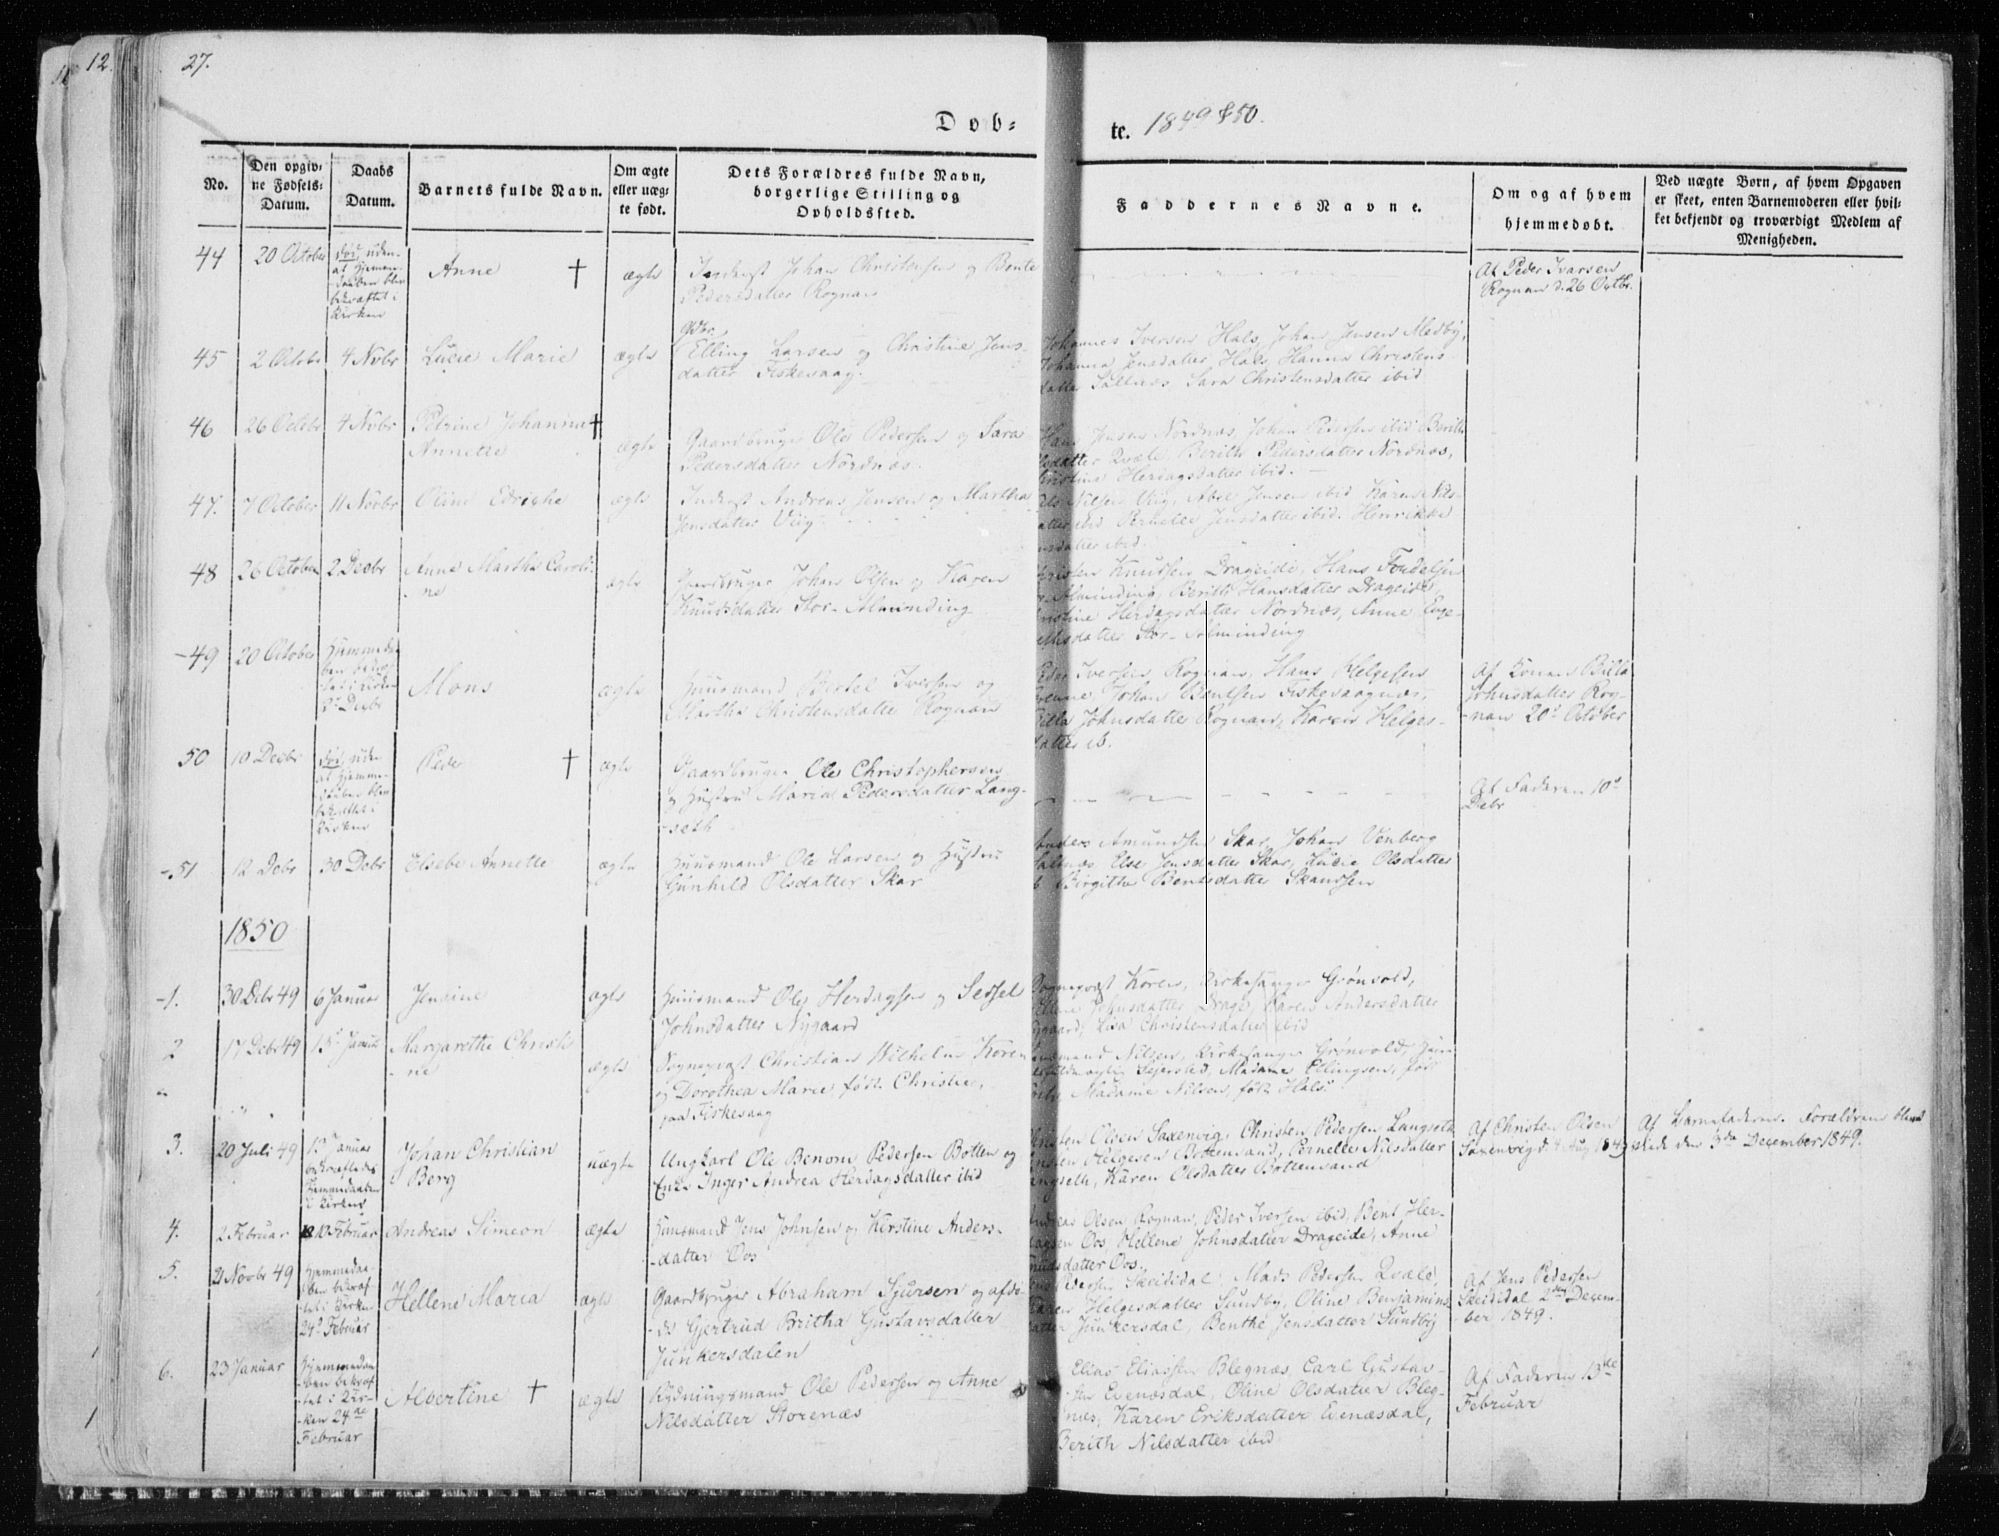 12.
27.
Døb-
te. 1849 & 50.
No.
Den opgiv-
ne Fødsels-
Datum.
Daabs
Datum.
Barnets fulde Navn.
Om ægte
eller uæg-
te født.
Dets Forældres fulde Navn,
borgerlige Stilling og
Opholdssted.
Faddernes Navne.
Om og af hvem
hjemmedøbt.
Ved uægte Børn, af hvem Opgaven
er skeet, enten Barnemoderen eller hvil-
ket bekjendt og troværdigt Medlem af
Menigheden.
44
20 October
død, uden-
at Hjemme-
daaben blev
bekræftet i
Kirken
Anne †
ægte
Inderst Johan Christensen og Bente
Pedersdatter Rognan
Af Peder Ivarsen
Rognan d. 26 Octbr.
45
2 Octobr
4 Novbr
Lucie Marie
ægte
Gdbr
Elling Larsen og Christine Jens-
datter Fiskesaag.
Johannes Iversen Hals, Johan Jensen Medby,
Johanna Jensdatter Hals, Hanna Christens-
datter Saltnæs, Sara Christensdatter ibid
46
26 Octobr
4 Novbr
Petrine Johanna †
Annette
ægte
Gaardbruger Ole Pedersen og Sara
Pedersdatter Nordnæs.
Hans Jensen Nordnæs, Johan Pedersen ibid Berith
datter Qvæle, Berith Pedersdatter Nordnæs,
Christina Herdagsdatter ibid.
47.
7 October
11 Novbr
Oline
ægte
Inderst Andreas Jensen og Martha
Jensdatter Viig
Nils Nilsen Viig, Abel Jensen ibid Karen Nils-
datter ibid Pernelle Jensdatter ibid. Henrikke
datter ibid.
48
26 October
2 Decbr
Anne Martha Caroli-
ne
ægte
Gaardbruger Johan Olsen og Karen
Knudsdatter Stor-Alminding
Christen Knudsen Drageide, Hans
Alminding, Berith Hansdatter Drageide,
Christine Herdagsdatter Nordnæs, Anne
datter Stor-Alminding
-49
20 October
Hjemmedaa-
ben bekræf-
tet i Kirken
2 Decbr
Mons
ægte
Huusmand Bertel Iversen og
Martha Christensdatter Rognan
Peder Iversen Rognan, Hans Helgesen
Johan Bentsen Fiskesaagnæs,
Johnsdatter Rognan, Karen Helges-
datter ib.
Af Konen
Johnsdatter Rog-
nan 20de October
50
10 Decbr
død, uden
at Hjemme-
daaben blev
bekræftet i
Kirken
Peder †
ægte
Gaardbruger Ole Christophersen
og Hustru Maria Pedersdatter Lang-
seth
Af Faderen 10de
Debr
-51
12 Debr
30 Debr
Elsebe Annette
ægte
Huusmand Ole Larsen og Hustru
Gunhild Olsdatter Skar
Anders Amundsen Skar, Johan Venberg
Saltnæs Else Jensdatter Skar, Lucie Olsdatter
Birgitte Bentsdatter
1850
-1.
30 Debr 49
6 Januar
Jensine
ægte
Huusmand Ole Herdagsen og Sessel
Johnsdatter Nygaard
Sogneprest Koren, Kirkesanger Grønvold,
Ellene Johnsdatter Drage, Karen Andersdatter
Nygaard, Lisa Christensdatter ibid
2
17 Debr 49
13de Januar
Margarethe Christi-
ne
ægte
Sogneprest Christian Wilhelm Koren
og Dorothea Marie, født Christie,
paa Fiskesaag
Nilsen, Kirkesanger Grønvold,
Madame Ellingsen, født
Madame Nilsen, født Hals.
3.
20 Juli 49
13 Januar
bekræftedes
Hjemmedaaben
i Kirken
Johan Christian
Berg
uægte
Ungkarl Ole Benoni Pedersen Botten og
Enke Inger Andrea Herdagsdatter ibid
Christen Olsen Saxenvig, Christen Pedersen Langseth
Helgesen Bottensand, Pernelle Nilsdatter
Langseth, Karen Olsdatter Bottensand
Af Christen Olsen
Saxenvig d. 4 Aug 1849
Af Barnefaderen. Forældrene bleve
viede den 3die December 1849.
4.
2 Februar
10 Februar
Andreas Simeon
ægte
Huusmand Jens Johnsen og Kirstine Anders-
datter Oos
Andreas Olsen Rognan, Peder Iversen ibid, Bent Her-
dagsen Oos, Hellene Johnsdatter Drageide, Anne
datter Oos.
5.
21 Novbr 49
Hjemmedaa-
ben bekræf-
tet i Kirken
24de Februar
Hellene Maria
ægte
Gaardbruger Abraham Sjursen og afdø-
de Gjertrud Britha Gustavsdatter
Junkersdalen
Pedersen Skeididal, Mads Pedersen Qvæle,
Karen Helgesdatter Sundby, Oline Benjamins-
datter Junkersdal, Benthe Jensdatter Sundby
Af Jens Pedersen
Skeididal 2den Decem-
ber 1849.
6.
23 Januar
Hjemmedaa-
ben bekræf-
tet i Kir-
ken 24de
Februar
Albertine †
ægte
Rydningsmand Ole Pedersen og Anne
Nilsdatter Storenæs
Elias Eliassen Blegnæs, Carl Gustav-
sen Evenæsdal, Oline Olsdatter Bleg-
næs, Karen Eriksdatter Evenæsdal,
Berith Nilsdatter ibid
Af Faderen 13de
Februar